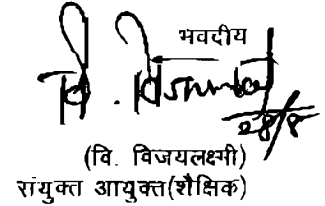 भवदीय
28/8
(वि. विजयलक्ष्मी)
संयुक्त आयुक्त(शैक्षिक)